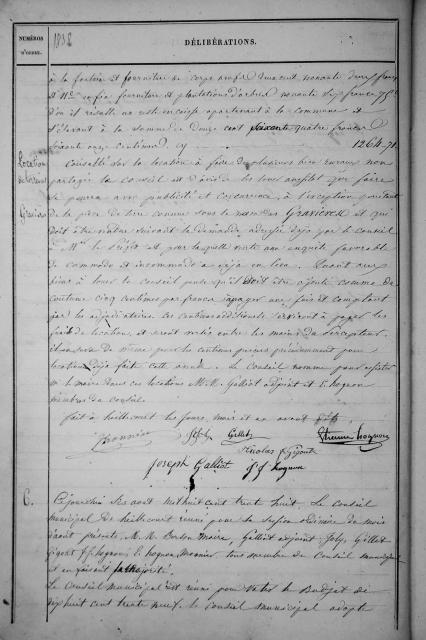 NUMÉROS
D'ORDRE.
1838
DÉLIBÉRATIONS.
à la fontaine et fourniture de corps neufs deux cent nonante deux francs
et N° enfin fourniture et plantations d'arbres nonante sept francs 75c
d'où il résulte un reste en caisse appartenant à la commune et
s'élevant à la somme de douze cent soixante quatre francs
soixante onze centimes cy 1264.71
Location
de terrains
Gravières
Consulté sur la location à faire de plusieurs biens ruraux non
partagés le conseil est d'avis de les louer aussitôt que faire
se pourra avec publicité et concurrence, à l'exception pourtant
de la pièce de terre connue sous le nom des Gravières et qui
doit être vendue suivant la demande adressée déjà par le conseil
à Mr le Préfet et pour laquelle vente une enquête favorable
de commodo et incommodo a déjà eu lieu. Quant aux
biens à louer le conseil pense qu'il doit être ajouté comme de
coutume cinq centimes par franc à payer aux frais et comptant
par les adjudicataires. Ces centimes additionnels serviront à payer les
frais de location, et seront versés entre les mains du percepteur.
il en sera de même pour les centimes perçus précédemment pour
locations déjà faites cette année. Le Conseil nomme pour assister
Mr le maire dans ces locations M.M. Galliot adjoint et E. hognon
membres du conseil.
fait à heillecourt les jours, mois et an avant dits
Monnier Joly Gillet Etienne hognon
Nicolas Gigout
Joseph Galliot J f hognon
6.
Cejourd'hui six août mil huit cent trente huit. Le conseil
municipal de heillecourt réuni pour la session ordinaire du mois
d'août présents M.M. maire, Galliot adjoint Joly, Gillet
Gigout f f hognon E. hognon Monnier tous membres du Conseil municipal
et en faisant la majorité.
Le conseil municipal est réuni pour voter le Budget de
dix huit cent trente neuf. le conseil municipal adopte